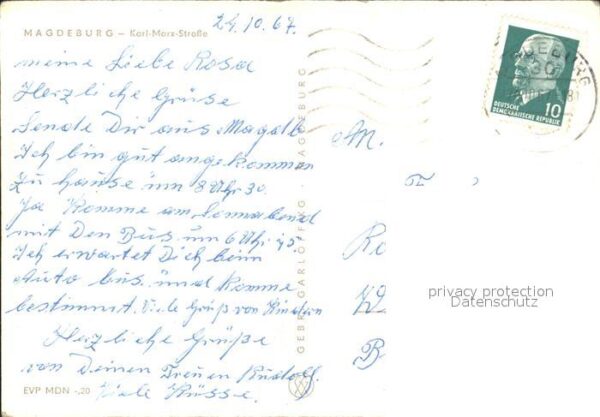 24.10.67.
MAGDEBURG – Karl-Marx-Straße
meine Liebe Rosa
Herzliche Grüse
Sende Dir aus Magdb
Ich bin gut angekommen
Zu hause um 8 Uhr 30.
Ja Komme am Sonnabend
mit Den Bus um 6 Uhr 45
Ich erwartet Dich beim
Auto bus und Komme
bestimmt. Viele Grüß von Kindern
Herzliche Grüße
von Deinen Treuen Rudolf.
Viele Küsse.
EVP MDN -,20
GEBR. GARLOFF KG. MAGDEBURG
An.
Ro
B
DEUTSCHE
DEMOKRATISCHE REPUBLIK
10
privacy protection
Datenschutz